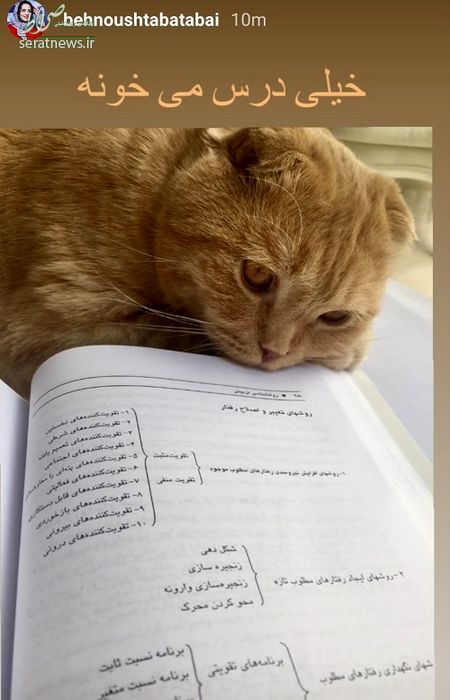 behnoushtabatabai 10m
صراط
seratnews.ir
خیلی درس می خونه
۶۸ ■ روانشناسی تربیتی
روشهای تغییر و اصلاح رفتار
۱- روشهای افزایش نیرومندی رفتارهای مطلوب موجود
تقویت مثبت
تقویت منفی
۱- تقویت‌کننده‌های نخستین
۲- تقویت‌کننده‌های شرطی
۳- تقویت‌کننده‌های تعمیم یافته
۴- تقویت‌کننده‌های اجتماعی
۵- تقویت‌کننده‌های پته‌ای یا
۶- تقویت‌کننده‌های فعالیتی
۷- تقویت‌کننده‌های قابل دستکاری
۸- تقویت‌کننده‌های بازخوردی
۹- تقویت‌کننده‌های بیرونی
۱۰- تقویت‌کننده‌های درونی
۲- روشهای ایجاد رفتارهای مطلوب تازه
شکل دهی
زنجیره سازی
زنجیره‌سازی وارونه
محو کردن محرک
شهای نگهداری رفتارهای مطلوب
برنامه‌های تقویتی
برنامه نسبت ثابت
برنامه نسبت متغیر